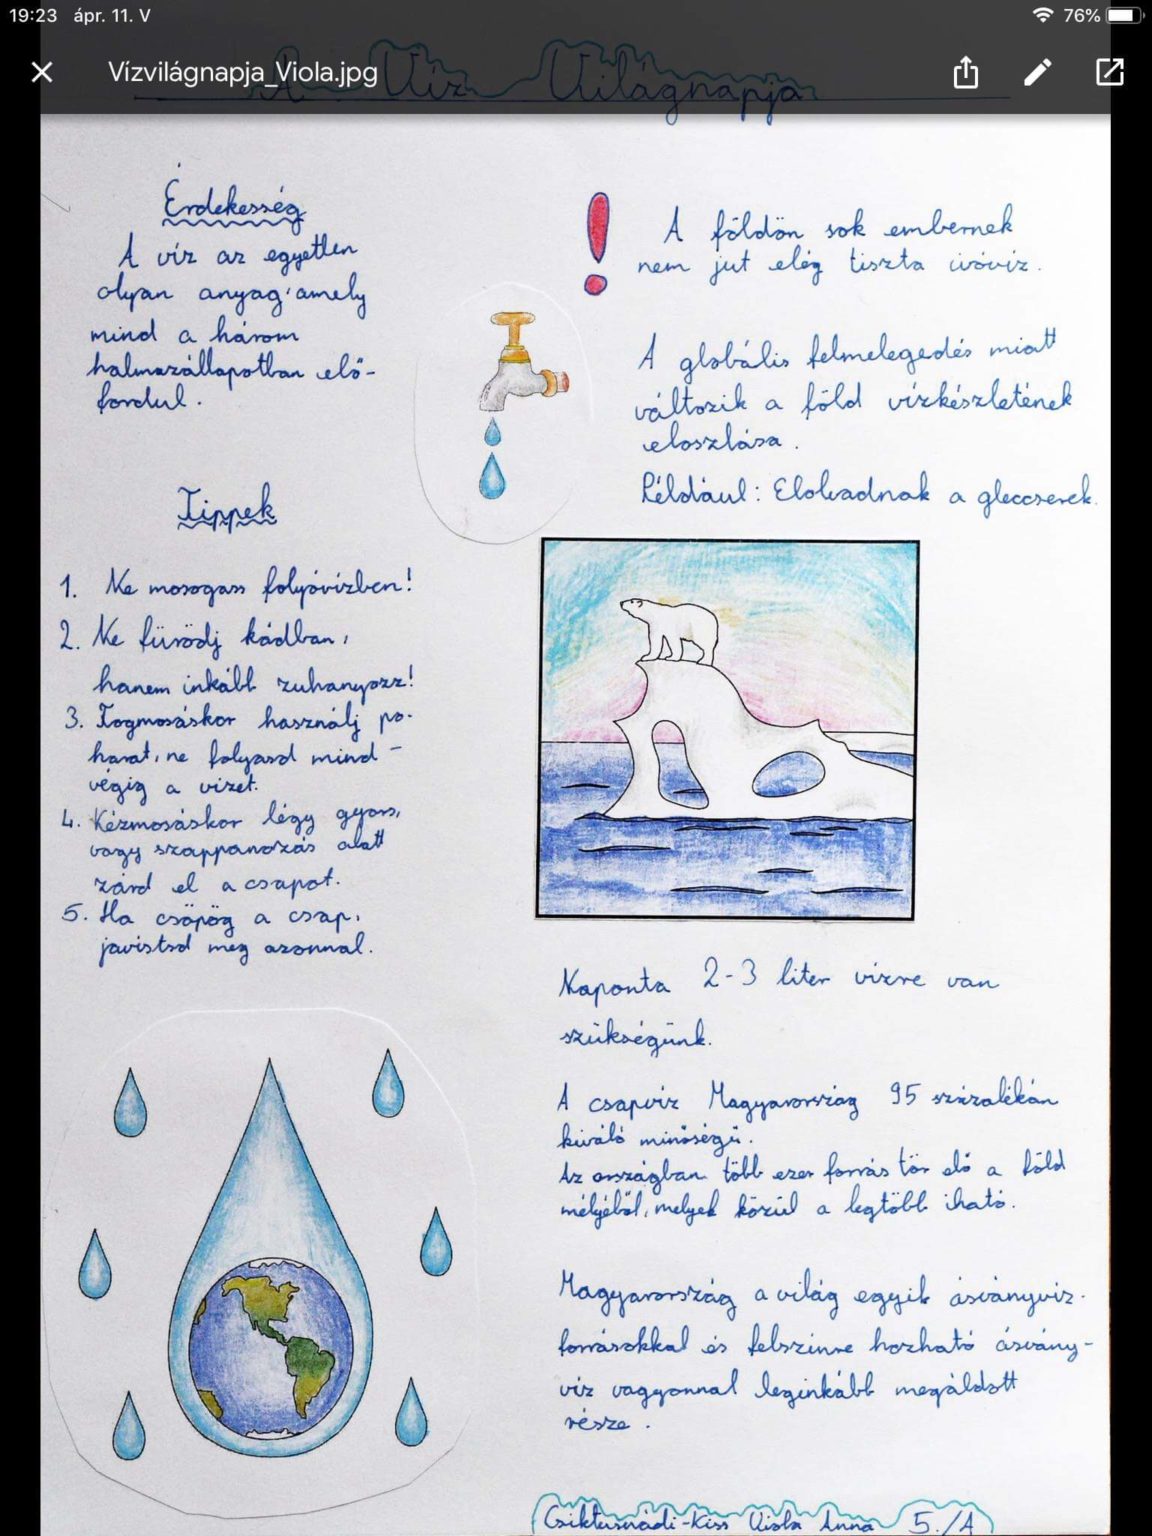 19:23 ápr. 11. V
76%
Vízvilágnapja_Viola.jpg
A Víz Világnapja
Érdekesség
A víz az egyetlen
olyan anyag, amely
mind a három
halmazállapotban elő-
fordul.
Tippek
1. Ne mosogass folyóvízben!
2. Ne fürödj kádban,
hanem inkább zuhanyozz!
3. Fogmosáskor használj po-
harat, ne folyasd mind-
végig a vizet.
4. Kézmosáskor légy gyors,
vagy szappanozás alatt
zárd el a csapot.
5. Ha csöpög a csap,
javíttsd meg azonnal.
A földön sok embernek
nem jut elég tiszta ivóvíz.
A globális felmelegedés miatt
változik a föld vízkészletének
eloszlása.
Például: Elolvadnak a gleccserek.
Naponta 2-3 liter vízre van
szükségünk.
A csapvíz Magyarország 95 százalékán
kiváló minőségű.
Az országban több ezer forrás tör elő a föld
mélyéből, melyek közül a legtöbb iható.
Magyarország a világ egyik ásványvíz-
forrásokkal és felszínre hozható ásvány-
víz vagyonnal leginkább megáldott
része.
Viola Anna 5./A